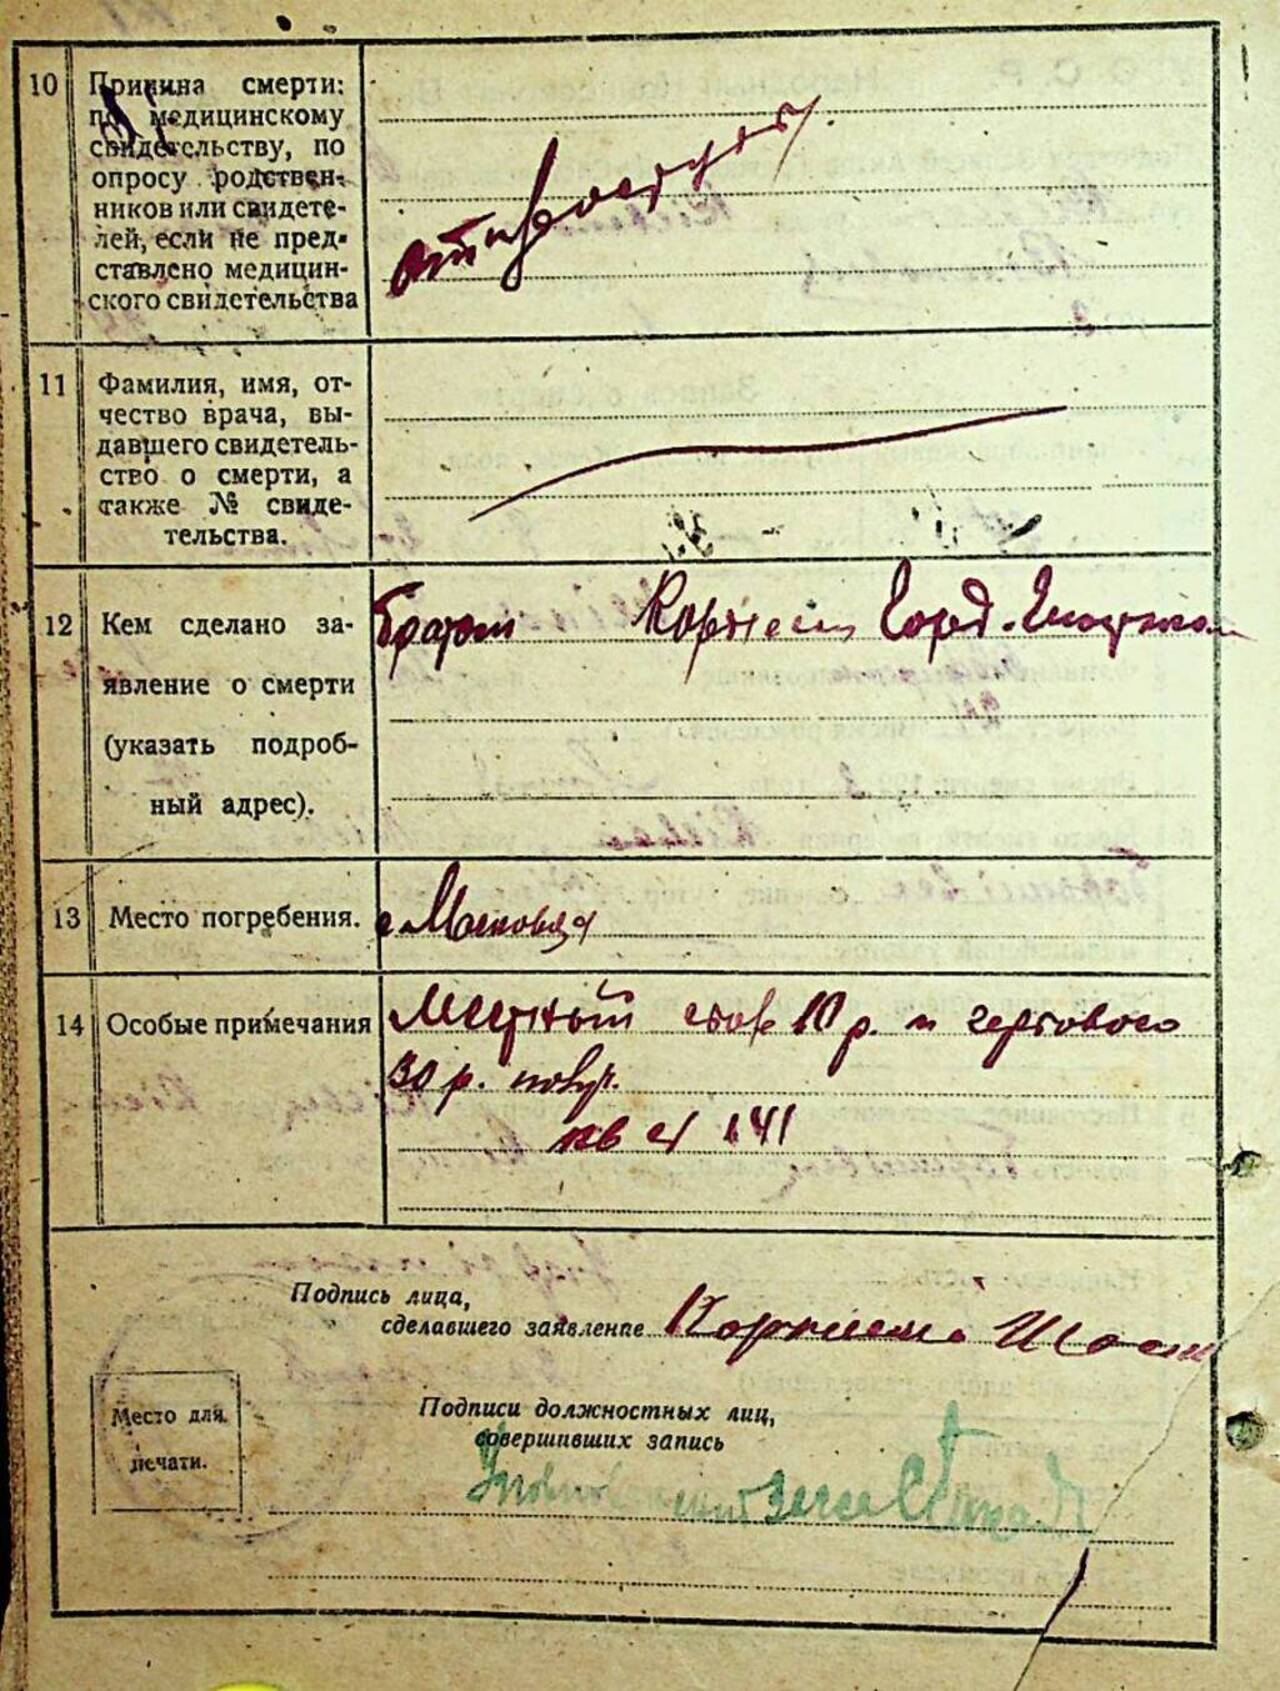 10 Причина смерти:
по медицинскому
свидетельству, по
опросу родствен-
ников или свидете-
лей, если не пред-
ставлено медицин-
ского свидетельства
от простуды
11 Фамилия, имя, от-
чество врача, вы-
давшего свидетель-
ство о смерти, а
также № свиде-
тельства.
12 Кем сделано за-
явление о смерти
(указать подроб-
ный адрес).
братом
13 Место погребения.
14 Особые примечания
Местный сбор 10 р. и гербового
30 р. получ.
кв № 141
Подпись лица,
сделавшего заявление
Место для
печати.
Подписи должностных лиц,
совершивших запись